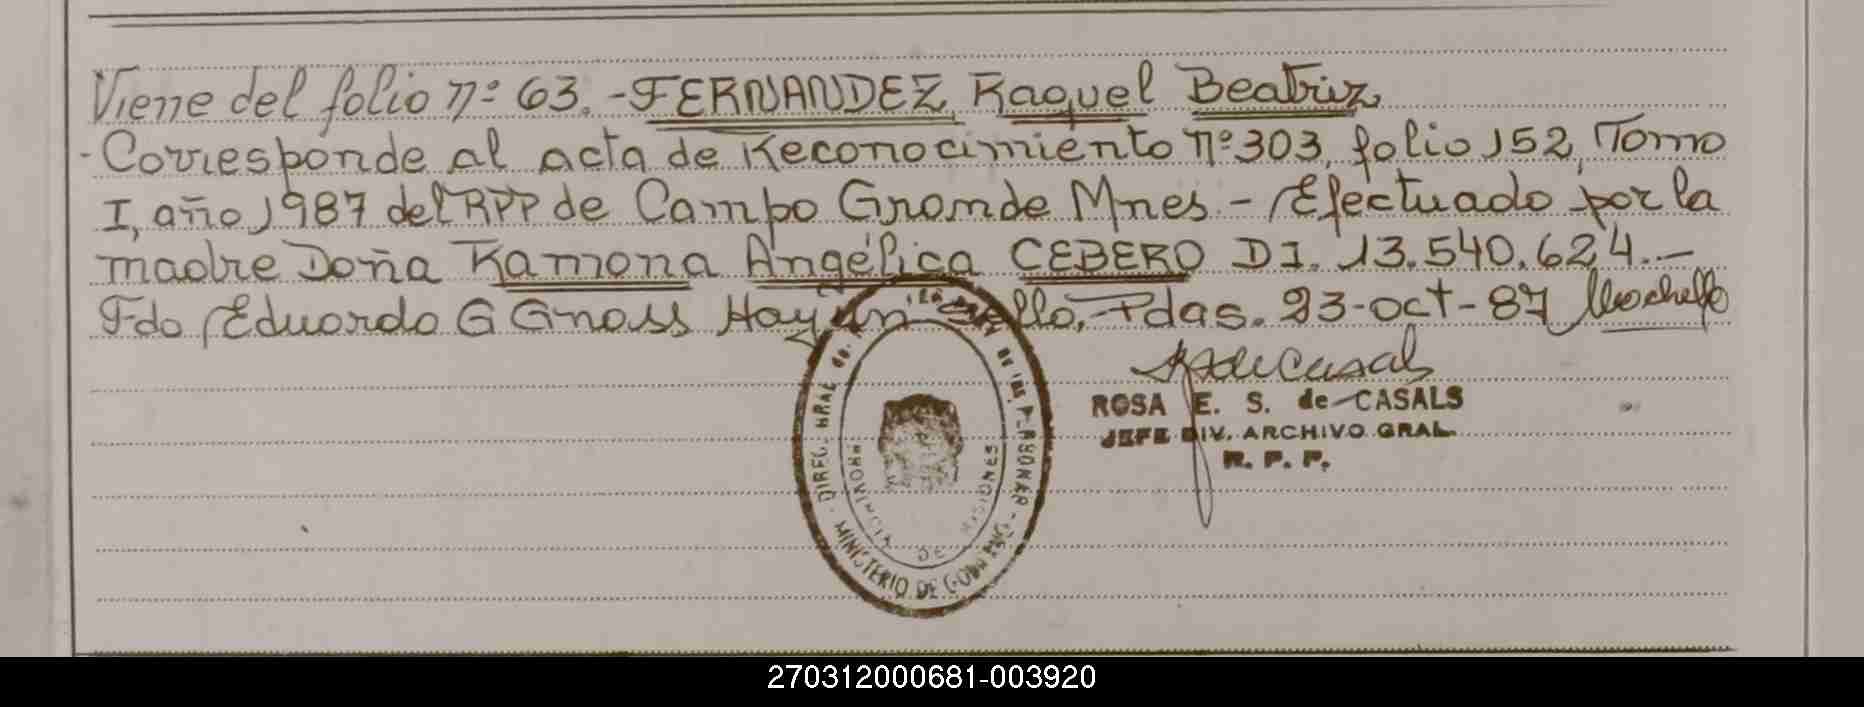 Viene del folio nº 63. - FERNANDEZ, Raquel Beatriz
- Corresponde al acta de Reconocimiento nº 303, folio 152, Tomo
I, año 1987 del RPP de Campo Grande Mnes. - Efectuado por la
madre Doña Ramona Angélica CEBERO DI. 13.540.624. -
Fdo Eduardo G Gnass Hay un sello, Pdas. 23-oct-87
ROSA E. S. de CASALS
JEFE DIV. ARCHIVO GRAL.
R. P. P.
DIREC. GRAL de. DE LAS PERSONAS - MINISTERIO DE GOBIERNO
PROVINCIA DE MISIONES
270312000681-003920